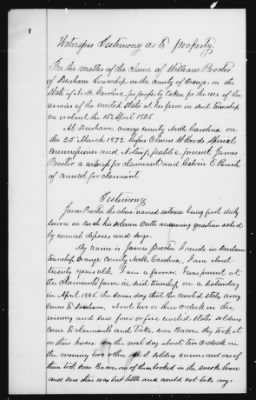 Witness Testimony as to Property
In the matter of the claim of William Proctor
of Durham Township in the county of Orange in the
State of N. Carolina, for property taken for the use of the
armies of the United States at his farm in said Township
on or about the 15 April 1865
At Durham, Orange county North Carolina on
the 25 March 1872 before Special
Commissioner and Notary public James
Proctor a witness for claimant and Calvin E Parish
of counsel for claimant
Testimony
James Proctor the above named witness being first duly
sworn in such his solemn oath answering question asked
by counsel deposes and
My name is James Proctor I reside in Durham
township Orange county North Carolina, I am about
years old. I am a farmer. I was present at
the claimants farm in said township on a Saturday
in April 1865 the same day that the united states army
came to Durham. about two or three oclock in the
evening and saw four or five united states soldiers
come to claimants and take some Bacon they took it
on their horses. On the next day about ten o'clock in
the morning two other U.S soldiers came and one of
them took some Bacon, one of them looked in the smoke house
and saw there was but little and would not take any.